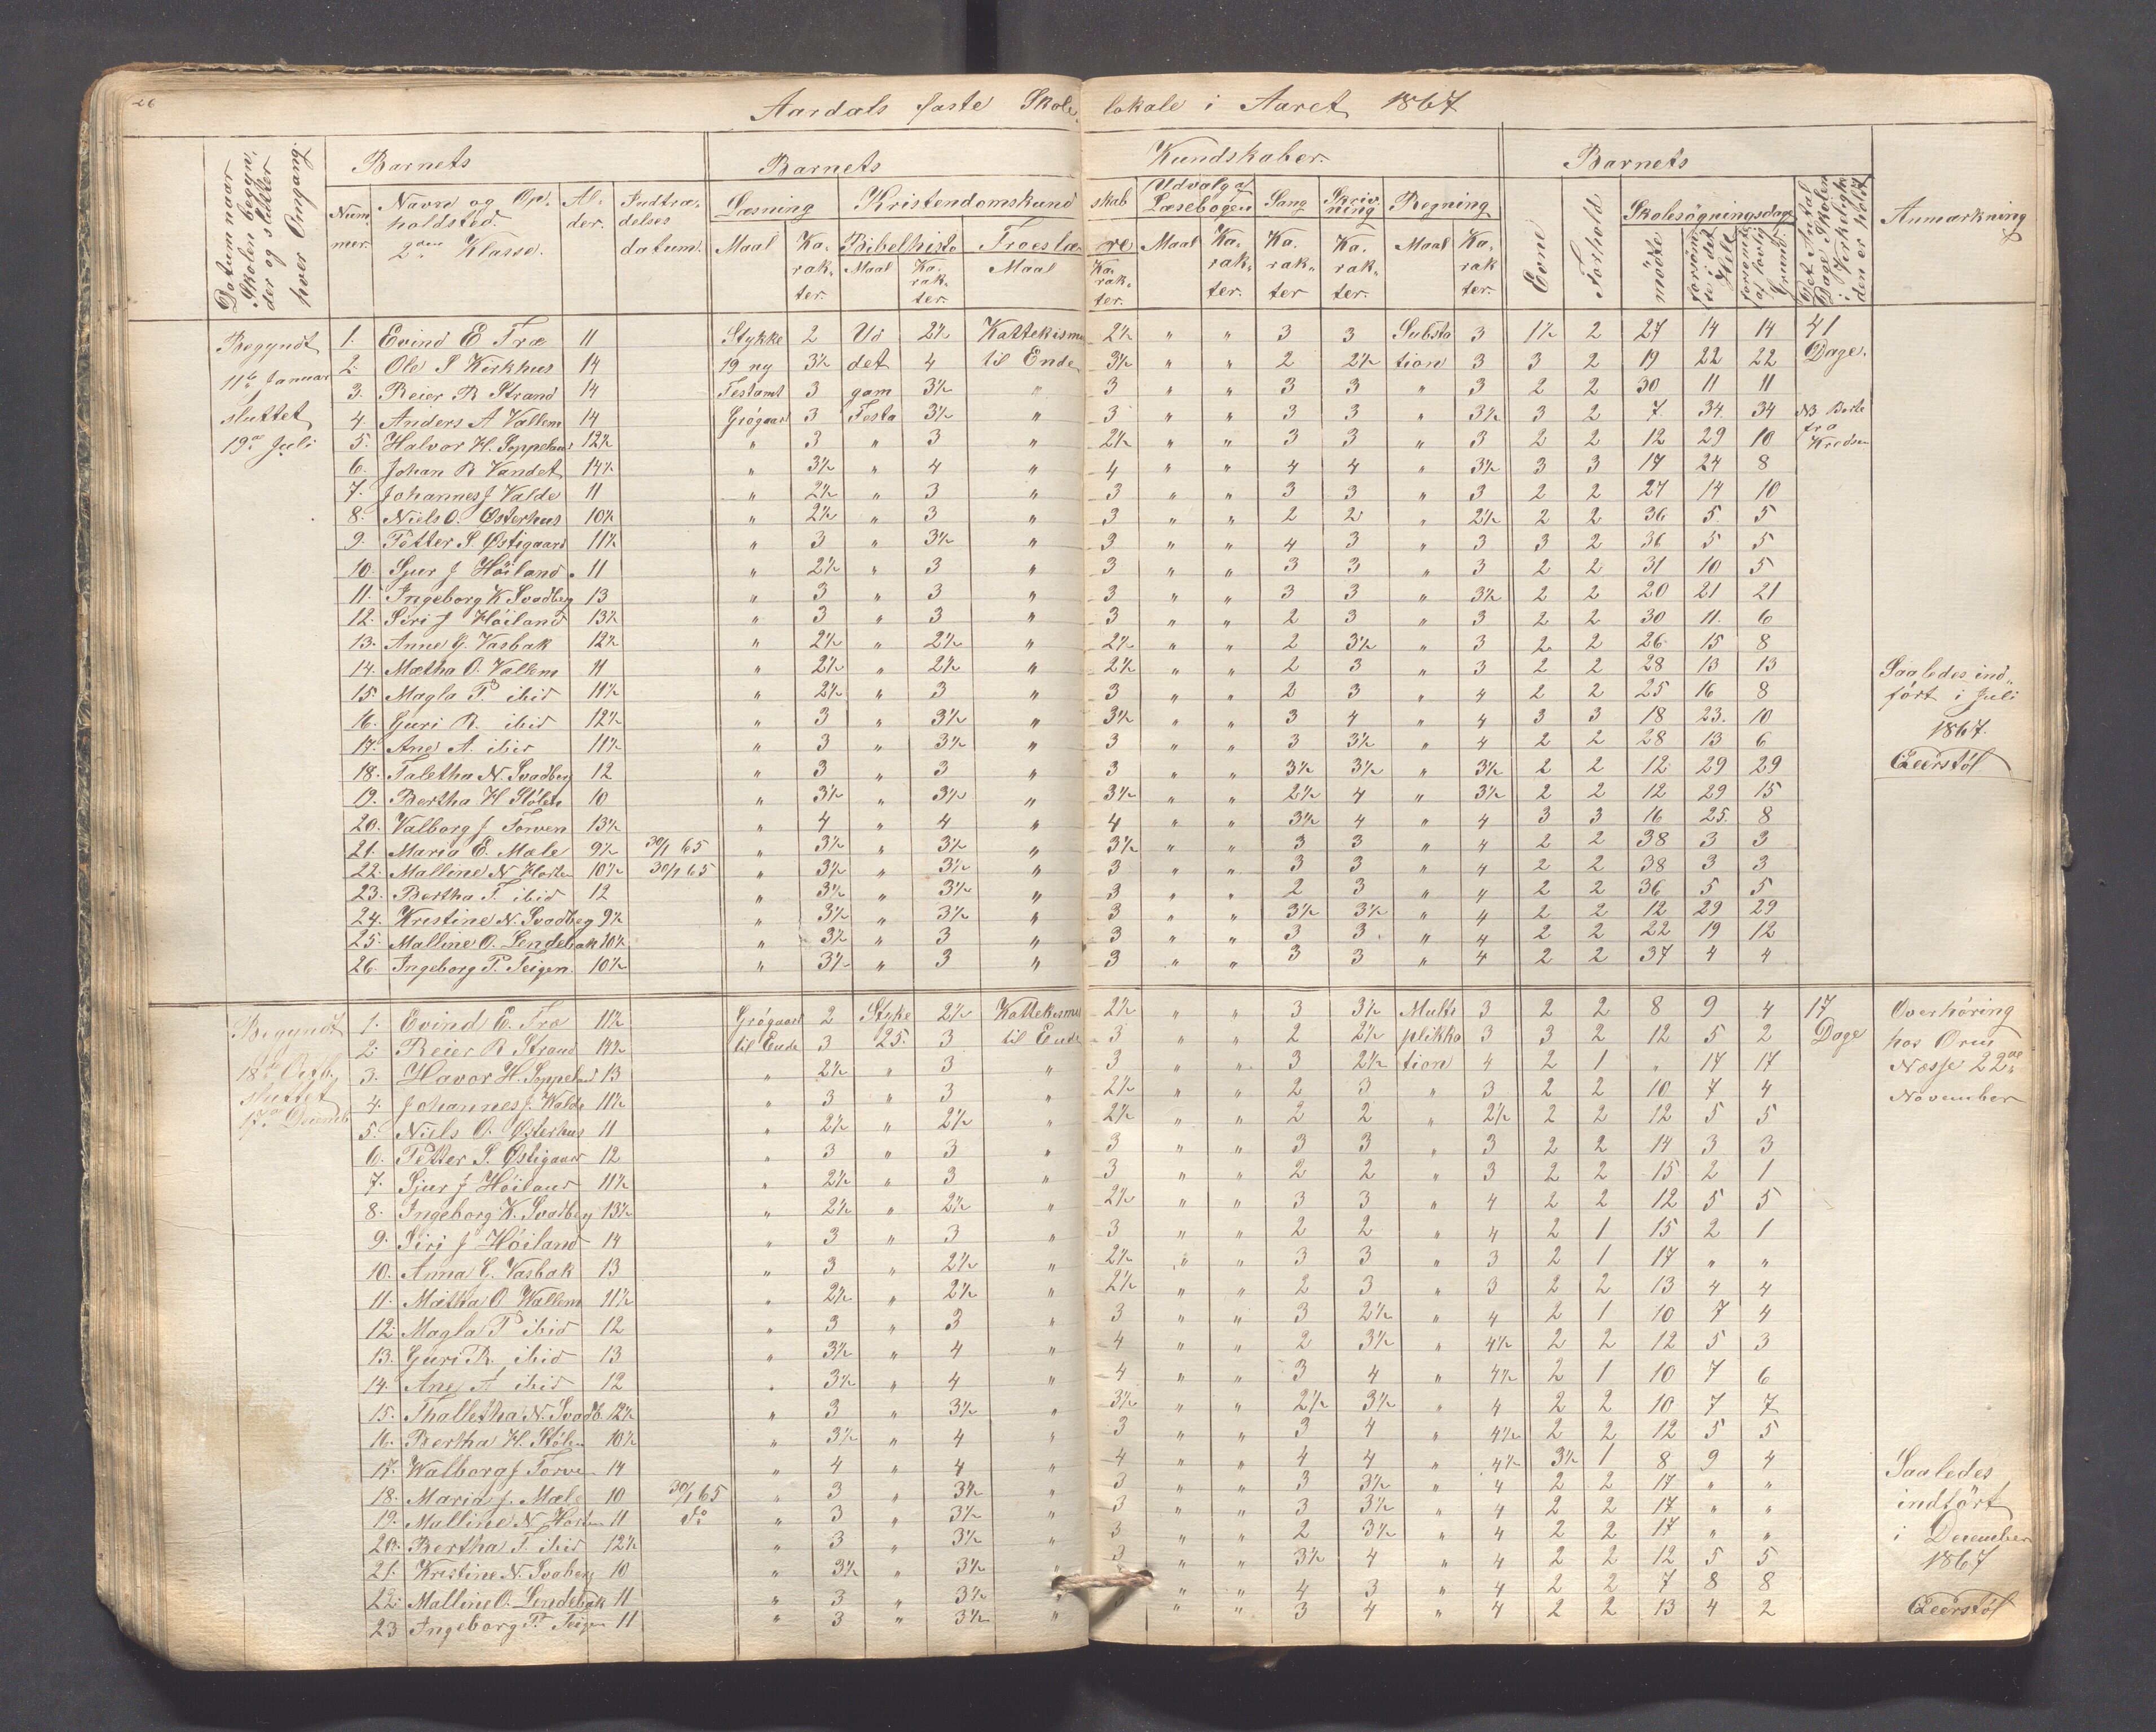 26
Aardals faste Skole lokale i Aaret 1867
Datum naar Skolen begyn- der og slutter hver Omgang.
Barnets
Barnets
Kundskaber.
Barnets
Anmærkning
Num- mer.
Navn og Op- holdsted. 2den Klasse.
Al- der.
Indtræ- delses datum.
Læsning
Kristendomskund skab
Udvalg af Læsebogen
Sang
Skriv- ning
Regning
Evne
Forhold
Skolesögningsdage
Det Antal Dage Skolen i Virkeligh den er holdt
Maal
Ka- rak- ter.
Bibelhisto
Troeslæ re
Maal
Ka- rak- ter.
Maal
Ka- rak- ter.
Maal
Ka- rak- ter.
Ka- rak- ter
Ka- rak- ter.
Maal
Ka- rak ter.
mödte
forsömte i det Hele
forsömte af lovlig Grund.
Begyndt
11te Januar
sluttet
19de Juli
1. Evind E Træ 11 Stykke 2 Ud 2½ Kattekisme 2½ " " 3 3 Substra 3 1½ 2 27 14 14 41
2. Ole S Kirkhus 14 19 ny 3½ det 4 til Ende 3½ " " 2 2½ tion 3 3 2 19 22 22 Dage.
3. Reier R Strand 14 Testamt 3 gam 3½ " 3 " " 3 3 " 3 2 2 30 11 11
4. Anders A Vallem 14 Grøgaard 3 Testa 3½ " 3 " " 3 3 " 3½ 3 2 7 34 34 NB Borte
5. Halvor H. Soppeland 12½ " 3 " 3 " 2½ " " 3 3 " 3 2 2 12 29 10 fra Kredsen
6. Johan R Vandet 14½ " 3½ " 4 " 4 " " 4 4 " 3½ 3 3 17 24 8
7. Johannes J Valde 11 " 2½ " 3 " 3 " " 3 3 " 3 2 2 27 14 10
8. Niels O. Østerhus 10½ " 2½ " 3 " 3 " " 2 2 " 2½ 2 2 36 5 5
9. Petter S. Østigaard 11½ " 3 " 3½ " 3 " " 4 3 " 3 3 2 36 5 5
10. Sjur J Höiland 11 " 2½ " 3 " 3 " " 3 3 " 3 2 2 31 10 5
11. Ingeborg K Svadberg 13 " 3 " 3 " 3 " " 3 3 " 3½ 2 2 20 21 21
12. Siri J Höiland 13½ " 3 " 3 " 3 " " 2 3 " 3 2 2 30 11. 6
13. Anne G. Vasbak 12½ " 2½ " 2½ " 2½ " " 2 3½ " 3 2 2 26 15 8
14. Mætha O. Vallem 11 " 2½ " 2½ " 2½ " " 2 3 " 3 2 2 28 13 13
15. Magla P ibid 11½ " 2½ " 3 " 3 " " 2 3 " 4 2 2 25 16 8
16. Guri R. ibid 12½ " 3 " 3½ " 3½ " " 3 4 " 4 3 3 18 23. 10
17. Ane A. ibid 11½ " 3 " 3½ " 3 " " 3 3½ " 4 2 2 28 13 6
18. Taletha N. Svadberg 12 " 3 " 3 " 3 " " 3½ 3½ " 3½ 2 2 12 29 29
19. Bertha H Stölen 10 " 3½ " 3½ " 3½ " " 2½ 4 " 3½ 2 2 12 29 15
20. Valborg J Torven 13½ " 4 " 4 " 4 " " 3½ 4 " 4 3 3 16 25. 8
21. Maria E. Mæle 9½ 30/1 65 " 3½ " 3½ " 3½ " " 3 3 " 4 2 2 38 3 3
22. Malline N Horten 10½ 30/1 65 " 3½ " 3½ " 3 " " 3 3 " 4 2 2 38 3 3
23. Bertha T. ibid 12 " 3½ " 3½ " 3 " " 2 3 " 4 2 2 36 5 5
24. Kristine N. Svadberg 9½ " 3½ " 3½ " 3 " " 3½ 3½ " 4 2 2 12 29 29
25. Malline O. Lendebak 10½ " 3½ " 3 " 3 " " 3 3 " 4 2 2 22 19 12
26. Ingeborg P. Teigen 10½ " 3½ " 3 " 3 " " 3 3 " 4 2 2 37 4 4
Saaledes ind-
fört i Juli
1867.
Begyndt
18de Octb.
sluttet
17de Decemb
1. Evind E. Træ 11½ Grøgaard 2 Styke 2½ Kattekisme 2½ " " 3 3½ Multi 3 2 2 8 9 4 17
2. Reier R Strand 14½ til Ende 3 25. 3 til Ende 3 " " 2 2½ plikka 3 3 2 12 5 2 Dage
3. Havor H. Soppeland 13 " 2½ " 3 " 3 " " 3 2½ tion 4 2 1 " 17 17
4. Johannes J. Walde 11½ " 3 " 3 " 2½ " " 2 3 " 3 2 2 10 7 4
5. Niels O. Østerhus 11 " 2½ " 2½ " 2½ " " 2 2 " 2½ 2 2 12 5 5
6. Petter S. Østigaard 12 " 3 " 3 " 3 " " 3 3 " 3 2 2 14 3 3
7. Sjur J Höiland 11½ " 2½ " 3 " 3 " " 2 2 " 3 2 2 15 2 1
8. Ingeborg K. Svadberg 13½ " 2½ " 2½ " 2½ " " 3 3 " 4 2 2 12 5 5
9. Siri J Höiland 14 " 3 " 3 " 3 " " 2 2 " 4 2 1 15 2 1
10. Anna G. Vasbak 13 " 3 " 2½ " 2½ " " 3 3 " 3 2 1 17 " "
11. Mætha O Wallem 11½ " 2½ " 2½ " 2½ " " 2 3 " 3 2 2 13 4 4
12. Magla P ibid 12 " 3 " 3 " 3 " " 3 2½ " 4 2 1 10 7 4
13. Guri R. ibid 13 " 3½ " 4 " 4 " " 2 3½ " 4½ 2 2 12 5 3
14. Ane A ibid 12 " 3½ " 4 " 4 " " 3 4 " 4½ 2 1 10 7 6
15. Thalletha N. Svadb. 12½ " 3 " 3½ " 3½ " " 2½ 3½ " 4 2 2 10 7 7
16. Bertha H. Stölen 10½ " 3½ " 4 " 3 " " 3 4 " 4½ 2 2 12 5 5
17. Walborg J Torven 14 " 4 " 4 " 4 " " 4 4 " 4½ 3½ 1 8 9 4
18. Maria J. Mæle 10 30/1 65 " 3 " 3½ " 3 " " 3 3½ " 4 2 2 17 " "
19. Malline N Horten 11 do " 3 " 3½ " 3 " " 3 3½ " 4 2 2 17 " "
20. Bertha T. ibid 12½ " 3 " 3½ " 3 " " 2 3½ " 4 2 2 17 " "
21. Kristine N. Svaberg 10 " 3½ " 3½ " 3 " " 3½ 4 " 4 2 2 12 5 5
22. Malline O. Lendebak 11 " 3 " 3½ " " " 4 3 " 4 2 2 7 8 8
23 Ingeborg P. Teigen 11 " 3 " 3½ " " " 3 4 " 4 2 2 13 4 2
Overhöring
hos Orm
Næsse 22de
November
Saaledes
indfört
i December
1867